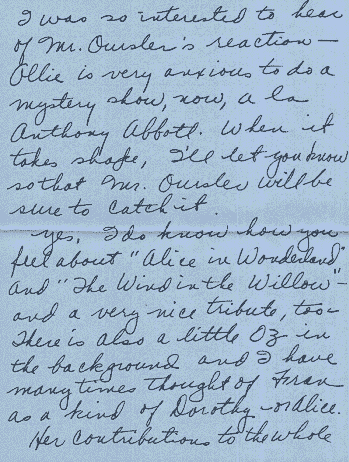 I was so interested to hear
of Mr. Oursler's reaction —
Ollie is very anxious to do a
mystery show, now, a la
Anthony Abbott. When it
takes shape, I'll let you know
so that Mr. Oursler will be
sure to catch it.
Yes, I do know how you
feel about "Alice in Wonderland"
and "The Wind in the Willow" -
and a very nice tribute, too -
There is also a little Oz in
the background and I have
many times thought of Fran
as a kind of Dorothy - or Alice.
Her contributions to the whole